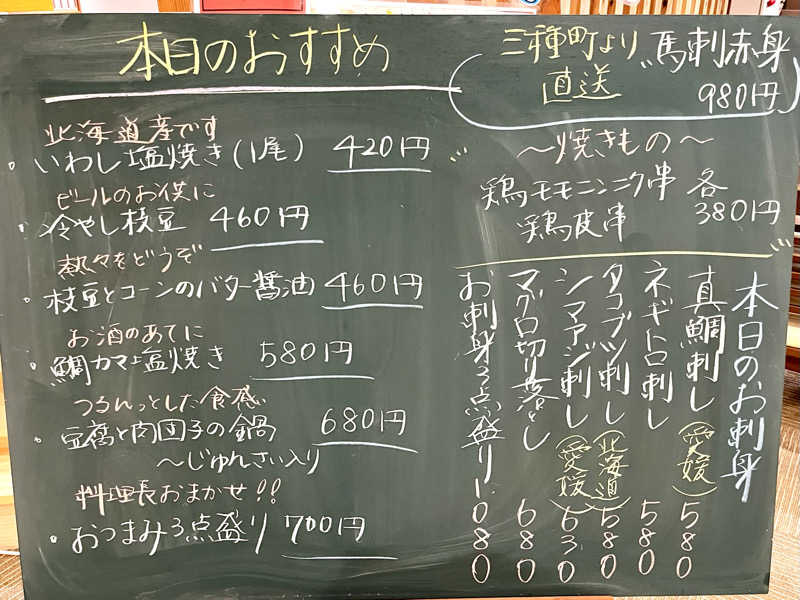 本日のおすすめ
北海道産です
・いわし塩焼き(1尾) 420円
ビールのお供に
・冷やし枝豆 460円
熱々をどうぞ
・枝豆とコーンのバター醤油 460円
お酒のあてに
・鯛カマ塩焼き 580円
つるんっとした食感
・豆腐と肉団子の鍋 680円
〜じゅんさい入り
料理長おまかせ!!
・おつまみ3点盛り 700円
三種町より
直送
馬刺赤身
980円
〜焼きもの〜
鶏モモニンニク串 各
鶏皮串 380円
本日のお刺身
真鯛刺し(愛媛)580
ネギトロ刺し 580
タコブツ刺し(北海道)580
シマアジ刺し(愛媛)630
マグロ切り落とし 680
お刺身3点盛り1.080